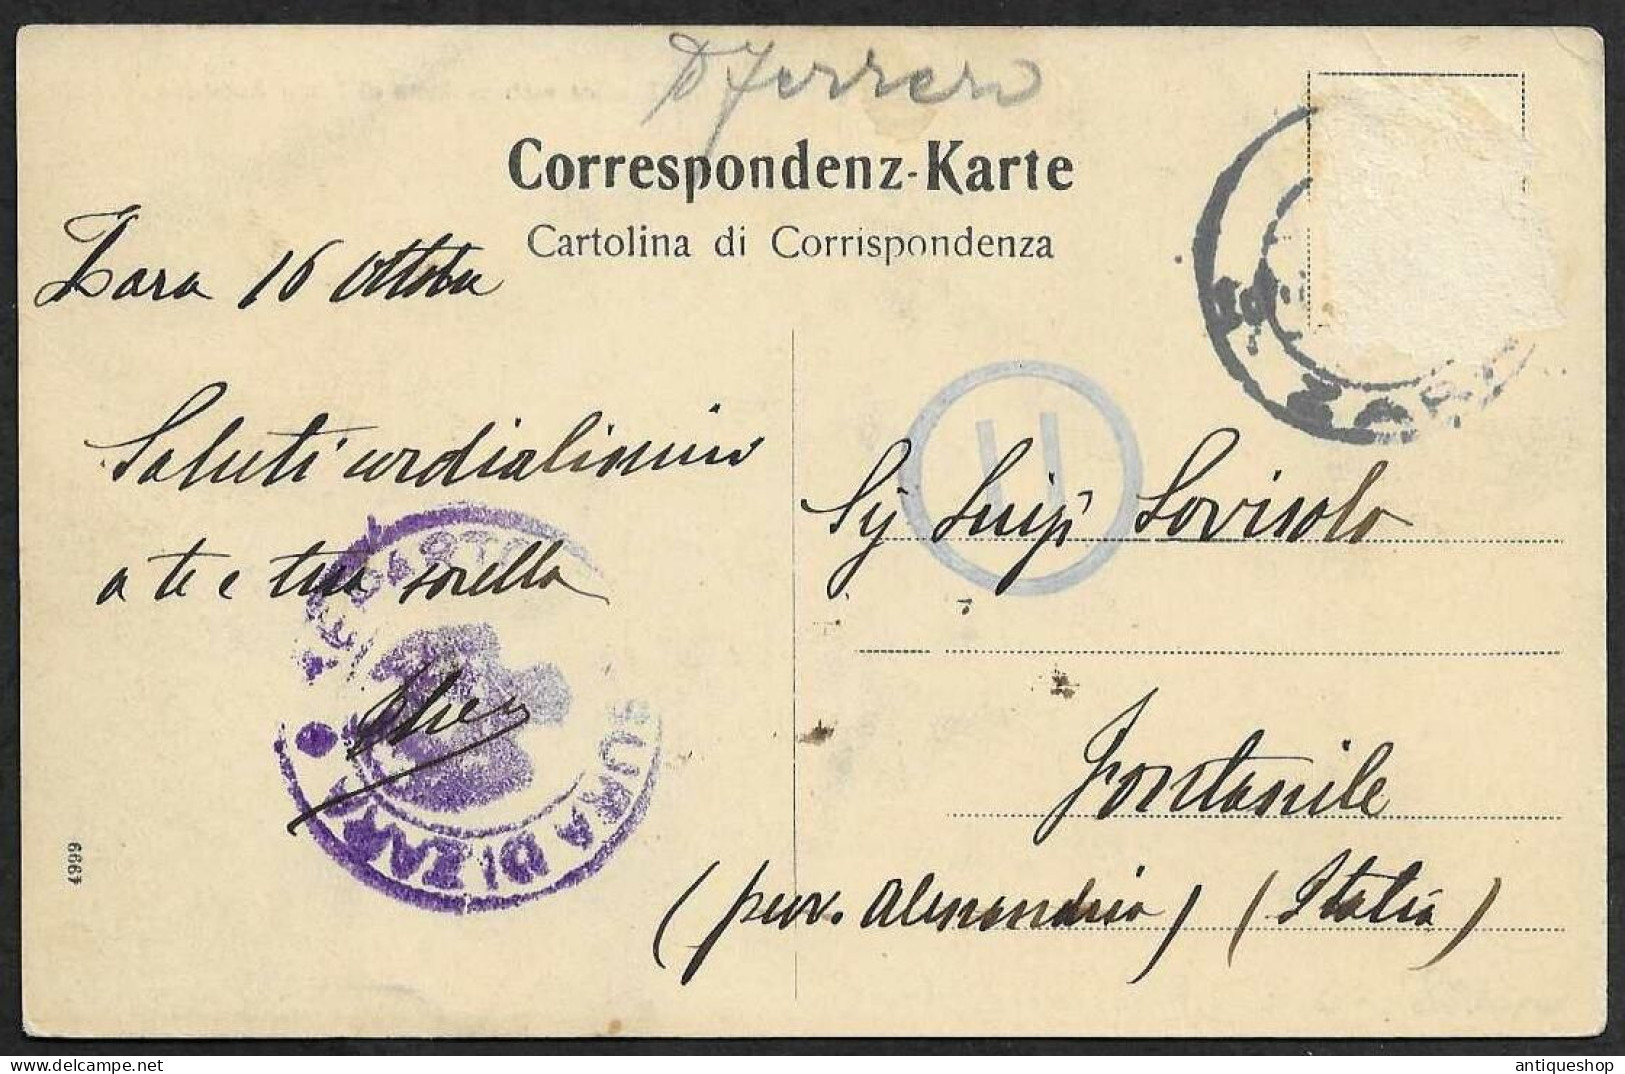 Ferrero
Correspondenz-Karte
Cartolina di Corrispondenza
Zara 16 Ottobre
Saluti cordialissimi
a te e tua sorella
Sig Luigi Sovisolo
Fontanile
(prov. Alessandria) (Italia)
11
SURA DI ZARA
4999
antiqueshop